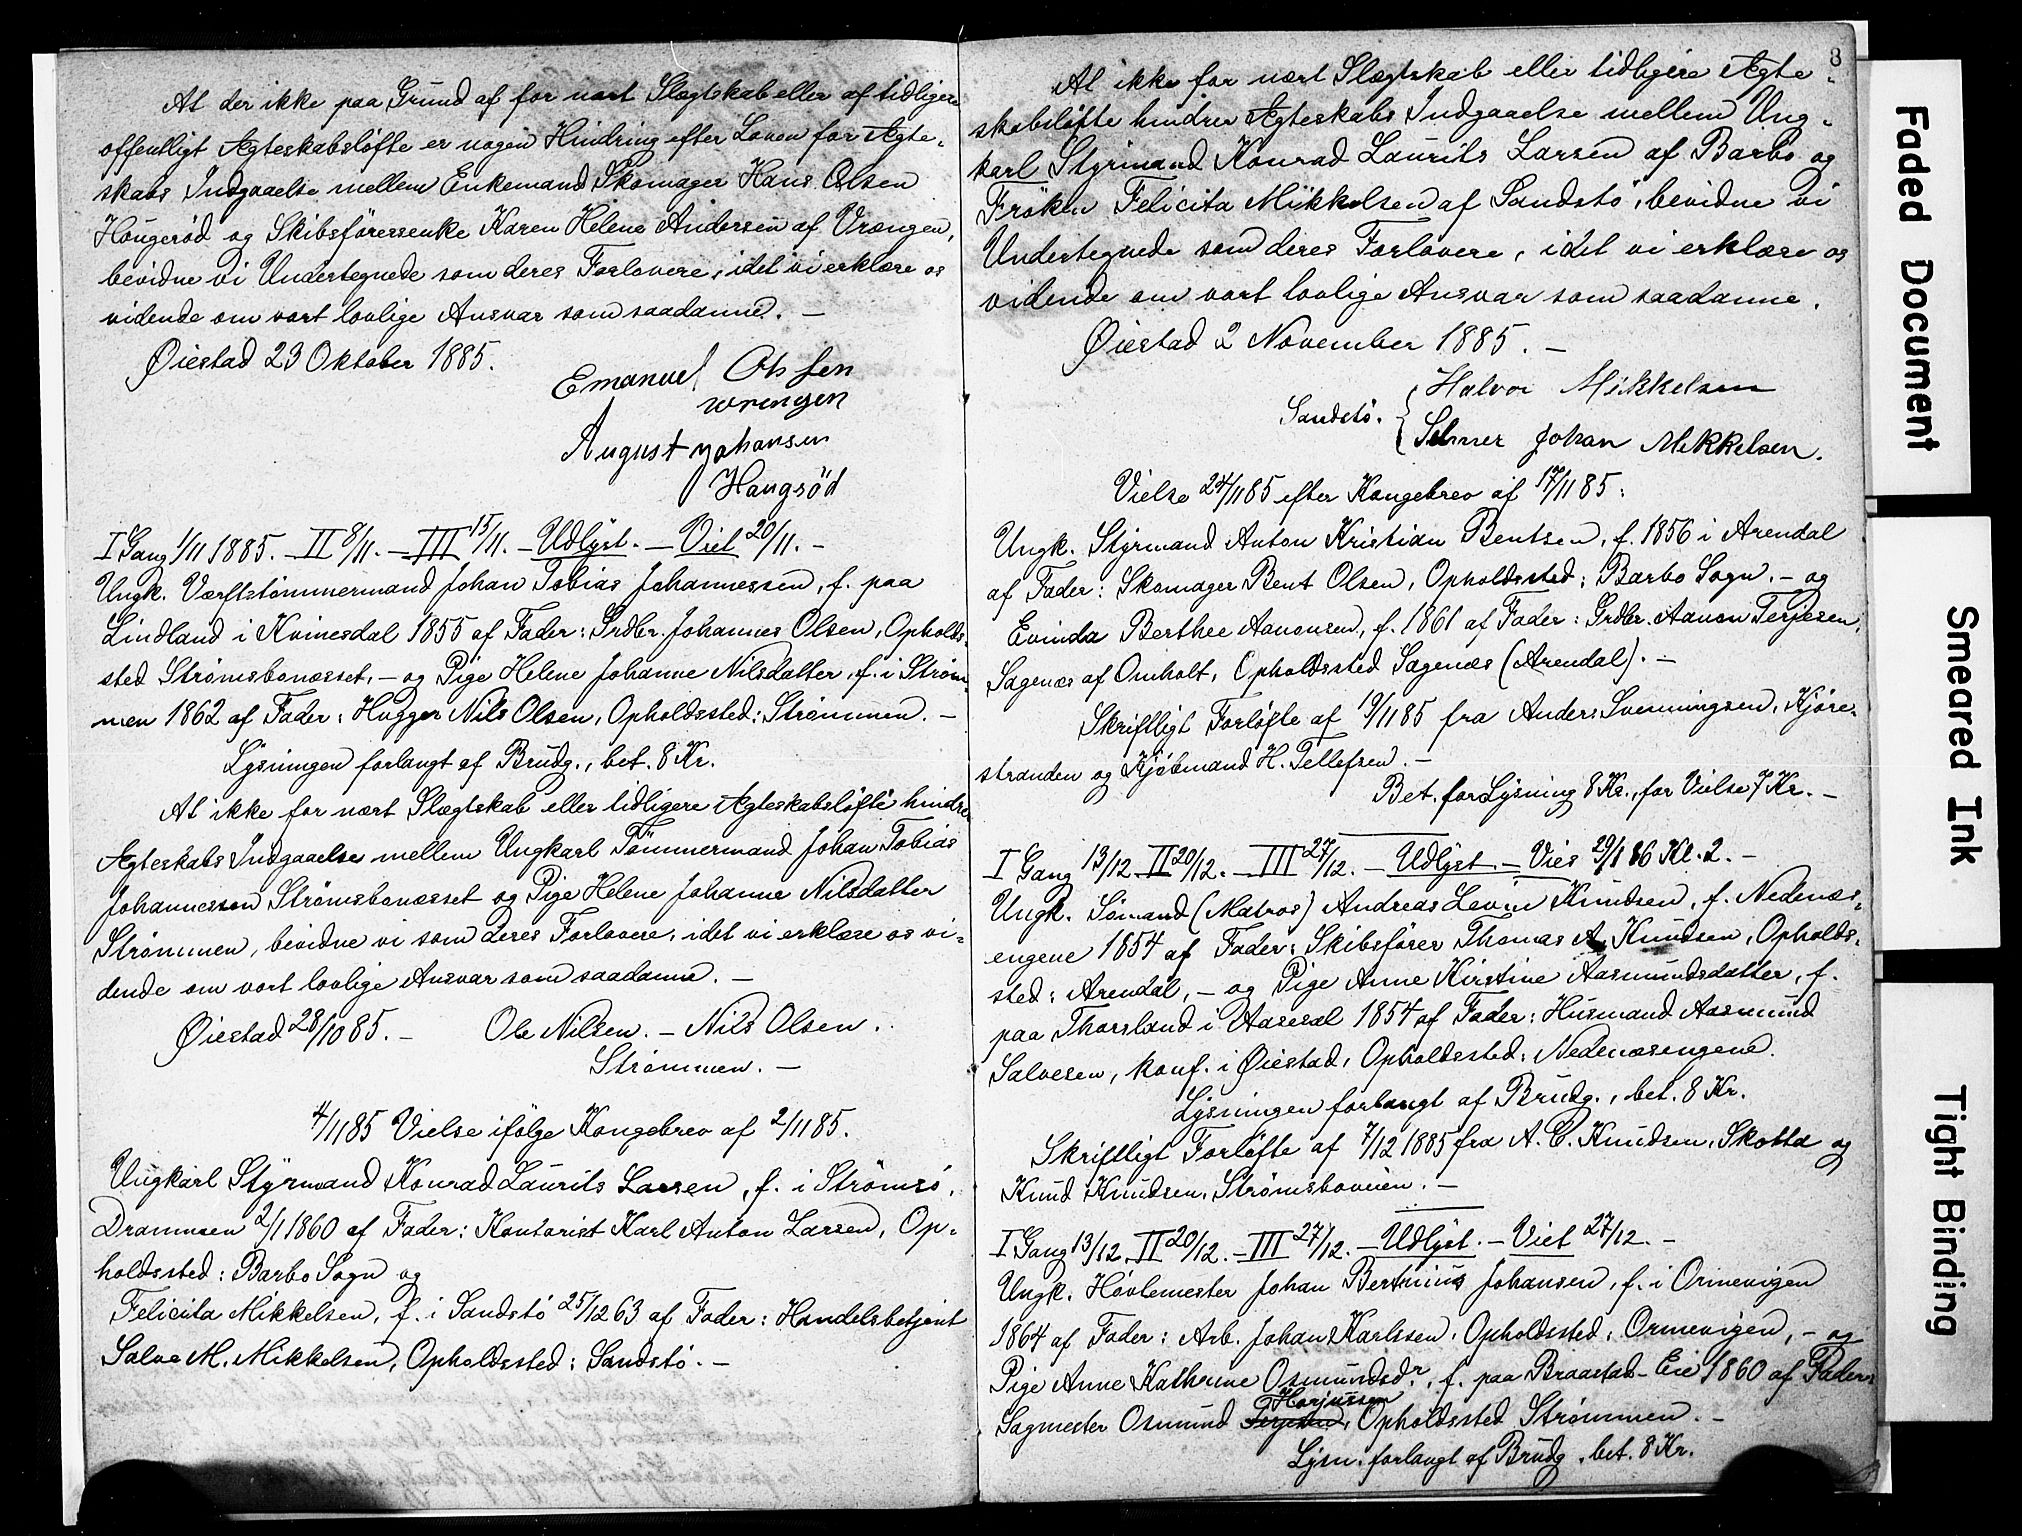 At der ikke paa Grund af for nært Slægtskab eller af tidligere
offentligt Ægteskabsløfte er nogen Hindring efter Loven for Ægte-
skabs Indgaaelse mellem Enkemand Skomager Hans Olsen
Hougerød og Skibsføreresenke Karen Helene Andersen af Vrængen,
bevidne vi Undertegnede som deres Forlovere, idet vi erklære os
vidende om vort lovlige Ansvar som saadanne. —
Øiestad 23 Oktober 1885.
Emanuel Olsen
wrengen
August Johansen
Haugsöd
I Gang 1/11 1885. — II 8/11. — III 15/11. — Udlyst. — Viet 20/11. —
Ungk. Værftstømmermand Johan Tobias Johannessen, f. paa
Lindland i Kvinesdal 1855 af Fader: Grdbr. Johannes Olsen, Opholds-
sted Strømsbonæsset, — og Pige Helene Johanne Nilsdatter, f. i Strøm-
men 1862 af Fader: Hugger Nils Olsen, Opholdssted: Strømmen. —
Lysningen forlangt af Brudg., bet. 8 Kr.
At ikke for nært Slægtskab eller tidligere Ægteskabsløfte hindrer
Ægteskabs Indgaaelse mellem Ungkarl Tømmermand Johan Tobias
Johannessen Strømsbonæsset og Pige Helene Johanne Nilsdatter
Strømmen, bevidne vi som deres Forlovere, idet vi erklære os vi-
dende om vort lovlige Ansvar som saadanne. —
Øiestad 28/10 85. — Ole Nilsen. — Nils Olsen.
Strømmen. —
4/11 85 Vielse ifølge Kongebrev af 2/11 85.
Ungkarl Styrmand Konrad Laurits Larsen, f. i Strømsø,
Drammen 2/1 1860 af Fader: Kontorist Karl Anton Larsen, Op-
holdssted: Barbo Sogn og
Felicita Mikkelsen, f. i Sandstø 25/12 63 af Fader: Handelsbetjent
Salve M. Mikkelsen, Opholdssted: Sandstø. —
8
At ikke for nært Slægtskab eller tidligere Ægte-
skabsløfte hindrer Ægteskabs Indgaaelse mellem Ung-
karl Styrmand Konrad Laurits Larsen af Barbo og
Frøken Felicita Mikkelsen af Sandstø, bevidne vi
Undertegnede som deres Forlovere, idet vi erklære os
vidende om vort lovlige Ansvar som saadanne.
Øiestad 2 November 1885. —
Halvor Mikkelsen
Sandstø.
Selmer Johan Mikkelsen.
Vielse 24/11 85 efter Kongebrev af 17/11 85:
Ungk. Styrmand Anton Kristian Bentsen, f. 1856 i Arendal
af Fader: Skomager Bent Olsen, Opholdssted: Barbo Sogn. — og
Evinda Berthee Aanonsen, f. 1861 af Fader: Grdbr. Aanon Terjesen,
Sagenæs af Omholt, Opholdssted Sagenæs (Arendal). —
Skriftligt Forløfte af 19/11 85 fra Anders Svenningsen, Kjøre-
stranden og Kjøbmand H. Tellefsen. —
Bet. for Lysning 8 Kr., for Vielse 7 Kr. —
I Gang 13/12 II 20/12. — III 27/12. — Udlyst. — Vies 29/1 86 Kl. 2. —
Ungk. Sømand (Matros) Andreas Levin Knudsen, f. Nedenæs-
engene 1854 af Fader: Skibsfører Thomas A. Knudsen, Opholds-
sted: Arendal, — og Pige Anne Kirstine Aasmundsdatter, f.
paa Thorsland i Aaseral 1854 af Fader: Husmand Aasmund
Salvesen, konf. i Øiestad, Opholdssted: Nedenæsengene.
Lysningen forlangt af Brudg., bet. 8 Kr.
Skriftligt Forløfte af 7/12 1885 fra A. C. Knudsen, Skotta og
Knud Knudsen, Strømsboveien. —
I Gang 13/12 II 20/12. — III 27/12. — Udlyst. — Viet 27/12. —
Ungk. Høvlemester Johan Bertinius Johansen, f. i Ormevigen
1864 af Fader: Arb. Johan Karlssen, Opholdssted: Ormevigen, — og
Pige Anne Kathrine Osmundsdr, f. paa Braastad-Eie 1860 af Fader:
Horjussen
Sagmester Osmund Terjesen, Opholdssted Strømmen. —
Lysn. forlangt af Brudg., bet. 8 Kr.
Faded Document
Smeared Ink
Tight Binding